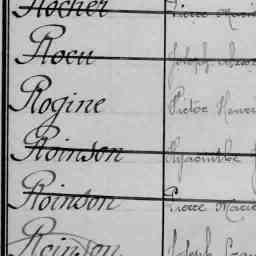 Rocher Pierre Marie
Rocu Joseph
Rogine Victor Henri
Roinson Hyacinthe
Roinson Pierre Marie
Roinson Joseph